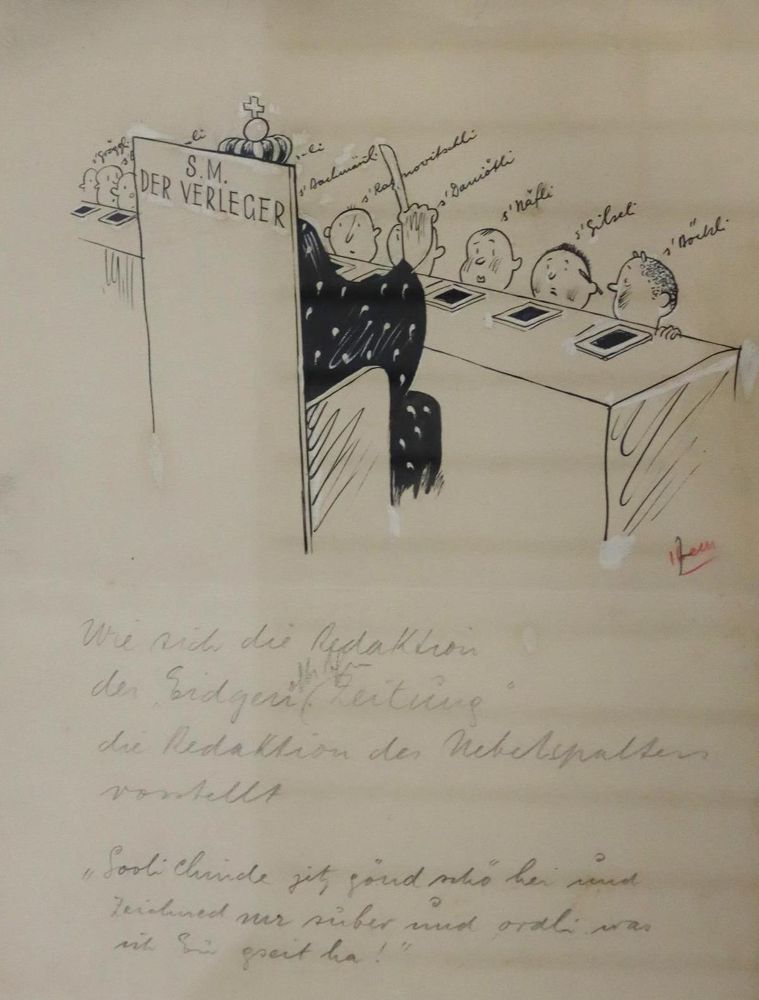 s'Gröggli
-li
-li
S.M.
DER VERLEGER
s'Bachmänli
s'Rabinovitschli
s'Daniöthli
s'Näfli
s'Gilseli
s'Böckli
Wie sich die Redaktion
der „Eidgen Zeitung"
die Redaktion des Nebelspalters
vorstellt
„Sooli Chinde jetz gönd schö hei und
Zeichned mr süber und ordli was
ich Eu gseit ha!"